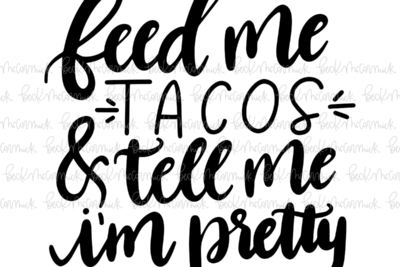 feed me
TACOS
& tell me
i'm pretty